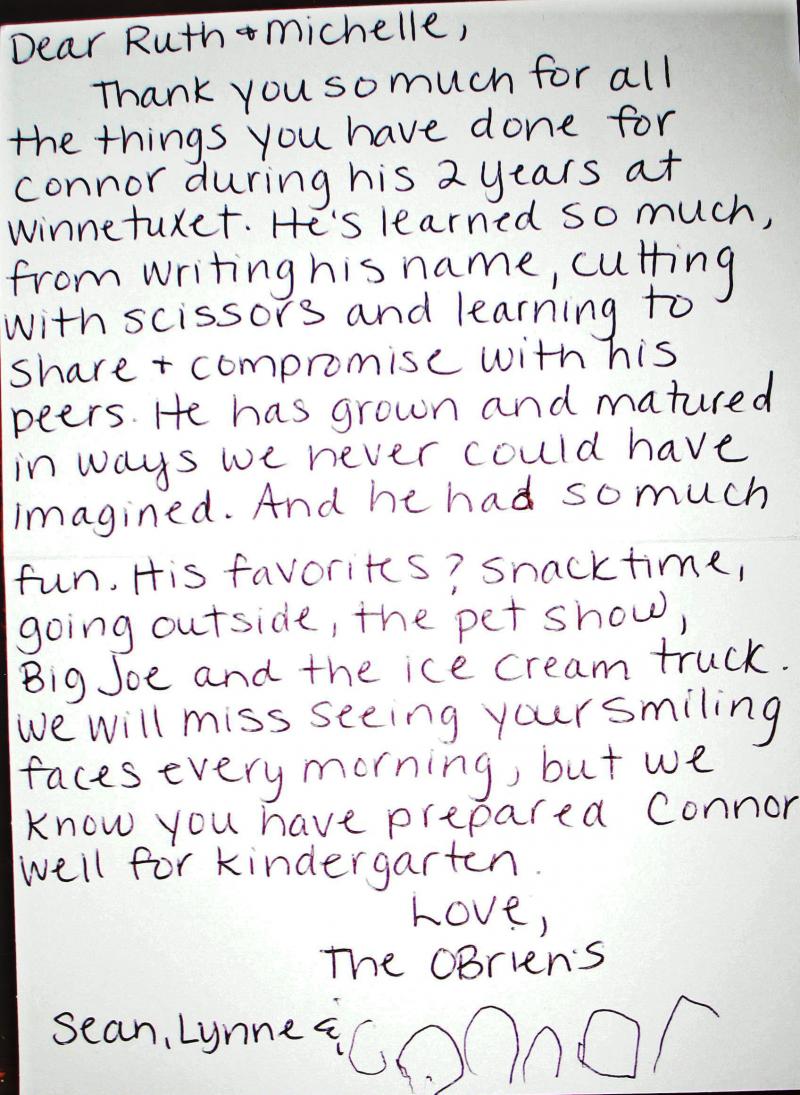 Dear Ruth + michelle,
Thank you so much for all
the things you have done for
Connor during his 2 years at
Winnetuxet. He's learned so much,
from writing his name, cutting
with scissors and learning to
share + compromise with his
peers. He has grown and matured
in ways we never could have
imagined. And he had so much
fun. His favorites? Snack time,
going outside, the pet show,
Big Joe and the ice cream truck.
We will miss seeing your smiling
faces every morning, but we
know you have prepared Connor
well for kindergarten.
Love,
The OBrien's
Sean, Lynne & Connor